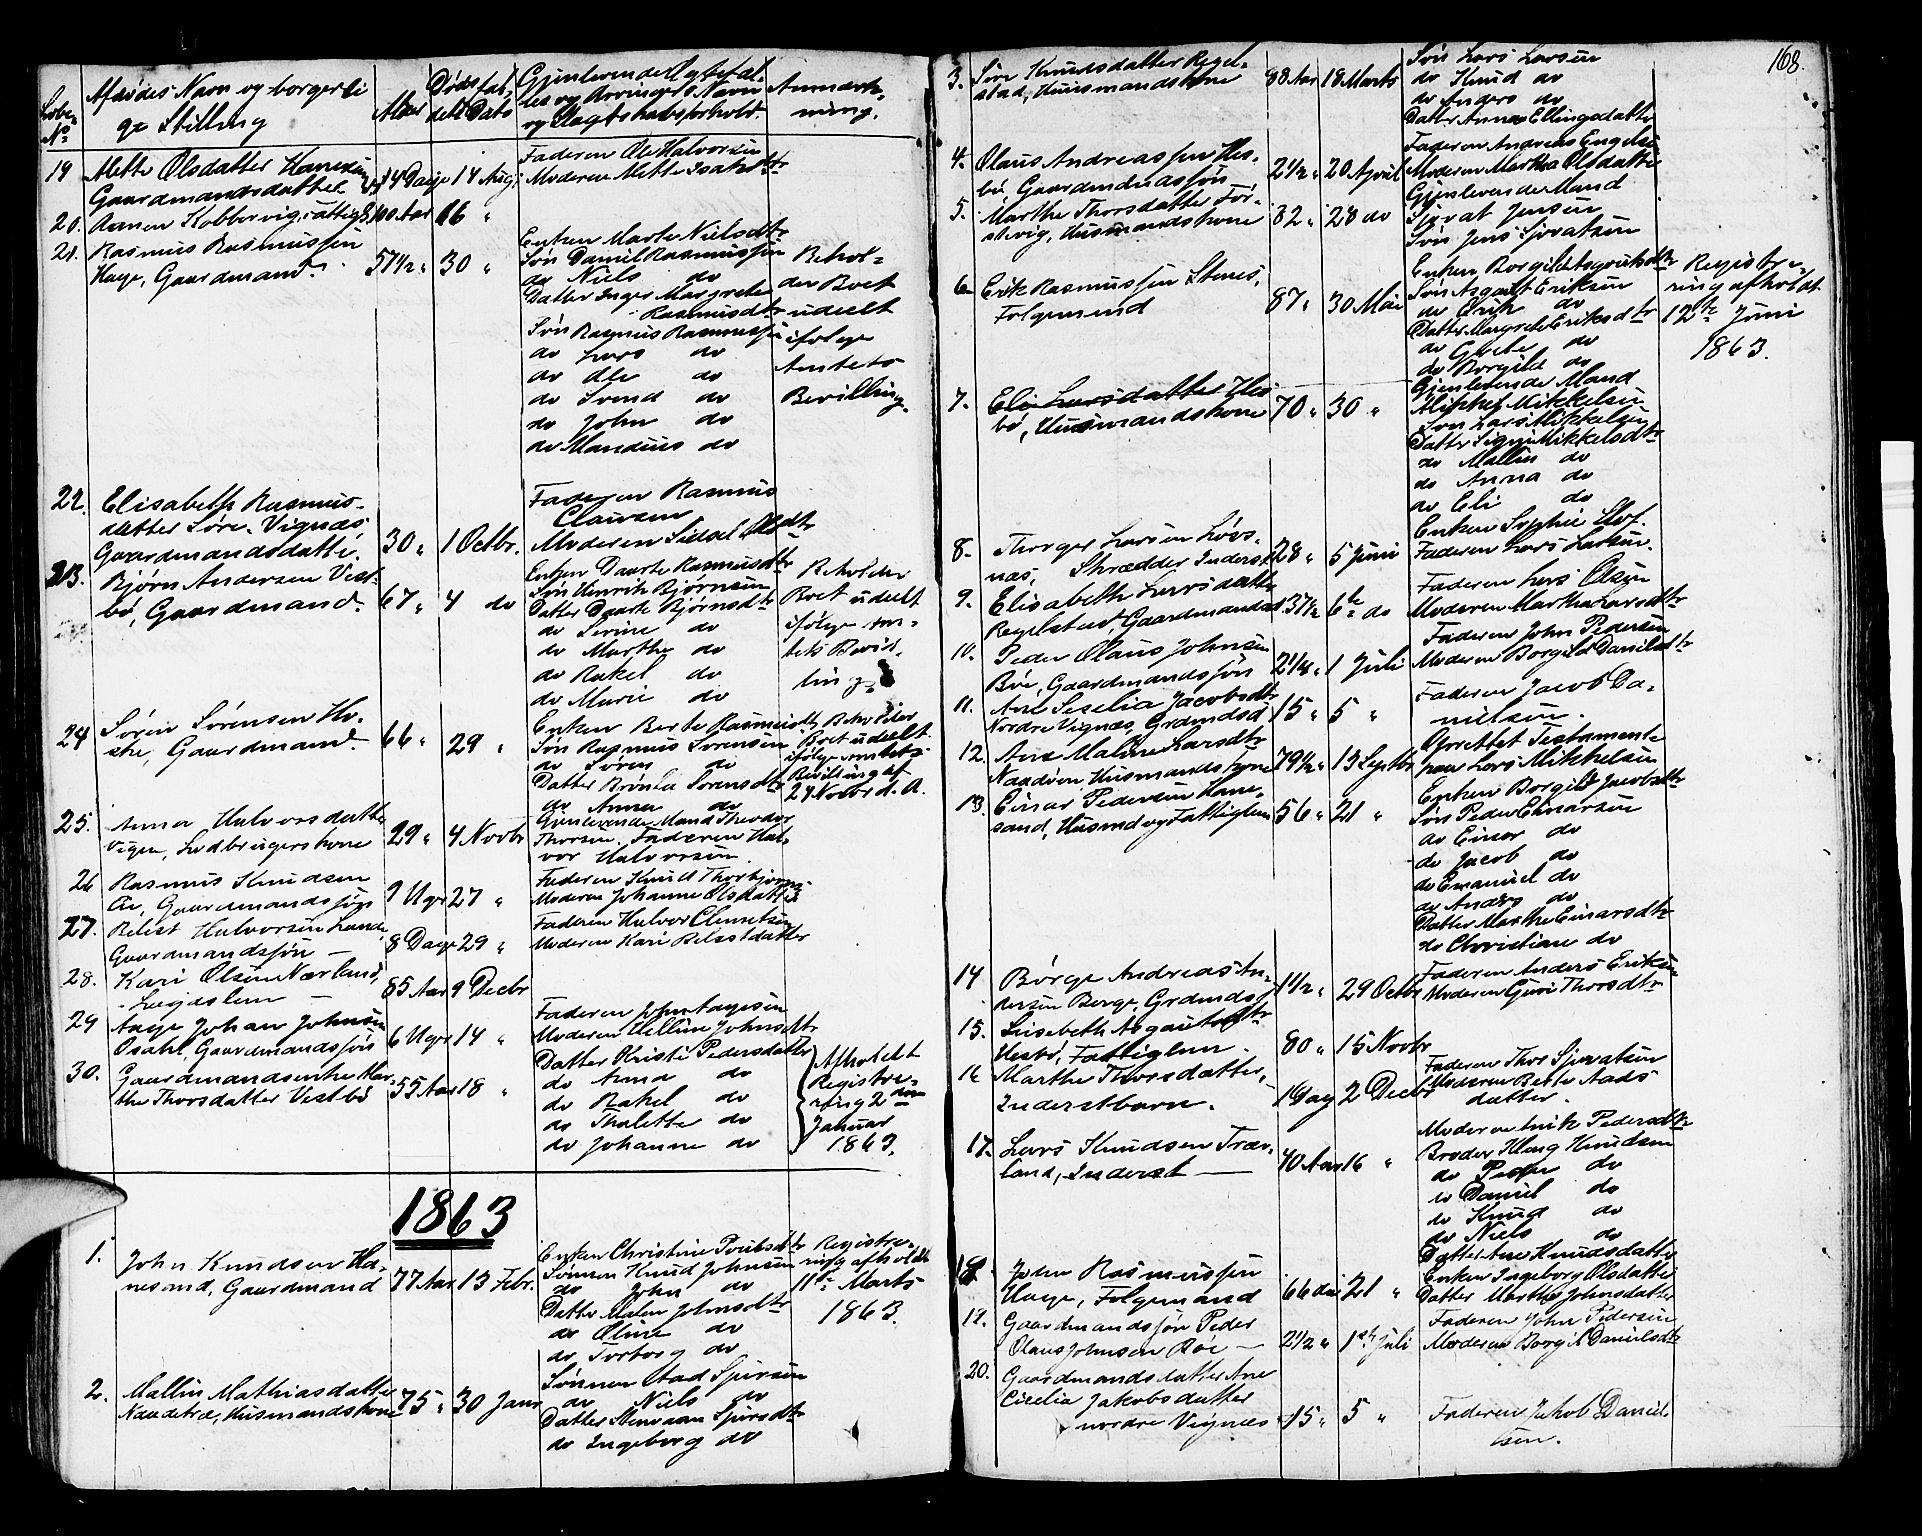 168.
Løbe
No
Afdødes Navn og borgerli
ge Stilling
Alder
Dødsfal,
dets Dato
Gjenlevende Ægtefæl-
les og Arvingers Navn
og Slægtskabsforhold.
Anmærk-
ning.
19 Mette Olsdatter Hanesund
Gaardmandsdatter
14 Dage 14 Aug.
Faderen Ole Halvorsen
Moderen Mette Isaksdtr
20. Aanen Kobbervig, fattigl. 40 Aar 16 "
21. Rasmus Rasmussen
Hage, Gaardmand.
57 1/2 " 30 "
Enken Marte Nielsdtr
Søn Daniel Rasmussen
do Niels do
Datter Inger Margrete
Rasmusdtr
Søn Rasmus Rasmussen
do Lars do
do Ole do
do Svend do
do John do
do Mandius do
Behol-
der Boet
udeelt
ifølge
Amtets
Bevilling.
22. Elisabeth Rasmus-
datter Søre Vignæs
Gaardmandsdatter.
30 " 1 Octbr.
Faderen Rasmus
Clausen
Moderen Sidsel Olsdtr
23. Bjørn Andersen Vest-
bø, Gaardmand.
67 " 4 do
Enken Daarte Rasmusdtr
Søn Henrik Bjørnsen
Datter Daarte Bjørnsdtr
do Serine do
do Marthe do
do Rakel do
do Marie do
Beholder
Boet udeelt
ifølge Am-
tets Bevil-
ling
24 Søren Sørensen Ho-
ske, Gaardmand.
66 " 29 "
Enken Berte Rasmusdtr
Søn Rasmus Sørensen
do Søren do
Datter Brønla Sørensdtr
do Anna do
Beholder
Boet udeelt
ifølge Amtets
Bevilling af
24 Novbr d. A.
25. Anna Halvorsdatter
Vigen, Ledbrugerskone
29 " 4 Novbr
Gjenlevende Mand Theodor
Thorsen. Faderen Hal-
vor Halvorsen.
26 Rasmus Knudsen
Aa, Gaardmandssøn
9 Uger 27 "
Faderen Knud Thorbjørns
Moderen Johanne Olsdatter
27. Relest Halvorsen Lande
Gaardmandssøn
8 Dage 29 "
Faderen Halvor Clemetsen
Moderen Kari Relestdatter
28. Kari Olsen Nærland,
Lægdslem
85 Aar 9 Decbr
29 Aage Johan Johnsen
Osahl, Gaardmandssøn
6 Uger 14 "
Faderen John Aagesen
Moderen Elline Johnsdtr
30. Gaardmandsenke Mar-
the Thorsdatter Vestbø
55 Aar 18 "
Datter Kristi Pedersdatter
do Anna do
do Rakel do
do Thalette do
do Johanne do
Afholdt
Registre-
ring 2den
Januar
1863.
1863
1. John Knudsen Ha-
nesund, Gaardmand
77 Aar 13 Febr.
Enken Christine Poulsdtr
Sønnen Knud Johnsen
do John do
Datter Malen Johnsdtr
do Oline do
do Torborg do
Registre-
ring afholdt
11te Marts
1863.
2. Mallin Mathiasdatter
Naadetræ, Husmandskone
75 " 30 Janr
Sønnen Aad Sjursen
do Niels do
Datter Stinaan Sjursdtr
do Ingeborg do
3. Siri Knudsdatter Regel-
stad, Huusmandskone
88 Aar 18 Marts
Søn Lars Larsen
do Knud do
do Anders do
Datter Anna Ellingsdatter
4. Olaus Andreassen Hes-
bø, Gaardmandssøn
2 1/2 " 20 April
Faderen Andreas Engelsen
Moderen Martha Olsdatter
5. Marthe Thorsdatter Før-
disvig, Husmandskone
82 " 28 do
Gjenlevende Mand
Sjovat Jensen
Søn Jens Sjovatsen
6 Erik Rasmussen Stenes,
Folgemand
87 " 30 Mai
Enken Borgild Asgautsdtr
Søn Asgaut Eriksen
do Erik do
Datter Margrete Eriksdtr
do Grete do
do Borgild do
Registre-
ring afholdt
12te Juni
1863.
7. Eli Larsdatter Hes-
bø, Huusmandskone
70 " 30 "
Gjenlevende Mand
Mikkel Mikkelsen
Søn Lars Mikkelsen
Datter Signi Mikkelsdtr
do Mallin do
do Anna do
do Eli do
8. Thorger Larsen Løvs-
nas, Skrædder Inderst
28 " 5 Juni
Enken Sophie Olof.
Faderen Lars Larsen.
9. Elisabeth Larsdatter
Regelstad, Gaardmandsd
37 1/2 6te do
Faderen Lars Olsen
Moderen Martha Larsdtr
10. Peder Olaus Johnsen
Bøe, Gaardmandssøn
2 1/4 " 1 Juli
Faderen John Pedersen
Moderen Borgild Danielsdtr
11. Ane Siselia Jacobsdtr
Nordre Vignæs, Grdmdsd
15 " 5 "
Faderen Jacob Da-
nielsen.
12. Ane Maline Larsdtr
Naadøen Husmandskone
79 1/2 " 13 Septbr
Oprettet Testamente
paa Lars Mikkelsen
13. Einar Pedersen Hane-
sund, Husmd og Fattiglem
56 " 21 "
Enken Borgild Jacobsdtr
Søn Peder Einarsen
do Einar do
do Jacob do
do Emanuel do
do Anders do
Datter Marthe Einarsdtr
do Christian do
14 Børge Andreas An-
dersen Berge, Grdmds
1 1/2 " 29 Octbr
Faderen Anders Eriksen
Moderen Guri Thorsdtr
15. Lisebeth Asgautsdtr
Hesbø, Fattiglem.
80 " 15 Novbr
16 Marthe Thorsdatter,
Inderstbarn.
1 Dag 2 Decbr
Faderen Thor Sjovatsen
Moderen Berte Aads
datter.
17. Lars Knudsen Træ-
land, Inderst
40 Aar 16 "
Moderen Enik Pedersdtr
Broder Klaug Knudsen
do Peder do
do Daniel do
do Knud do
do Niels do
Datter Ane Knudsdatter
18. John Rasmussen
Hage, Folgemand
66 do 21 "
Enken Ingeborg Olsdatter
Datter Marthe Johnsdatter
19. Gaardmandssøn Peder
Olaus Johnsen Bøe
2 1/2 " 1ste Juli
Faderen John Pedersen
Moderen Borgild Danielsdtr
20. Gaardmandsdatter Ane
Cicelia Jakobsdatter
nordre Vignæs
15 " 5 "
Faderen Jakob Daniel-
sen.